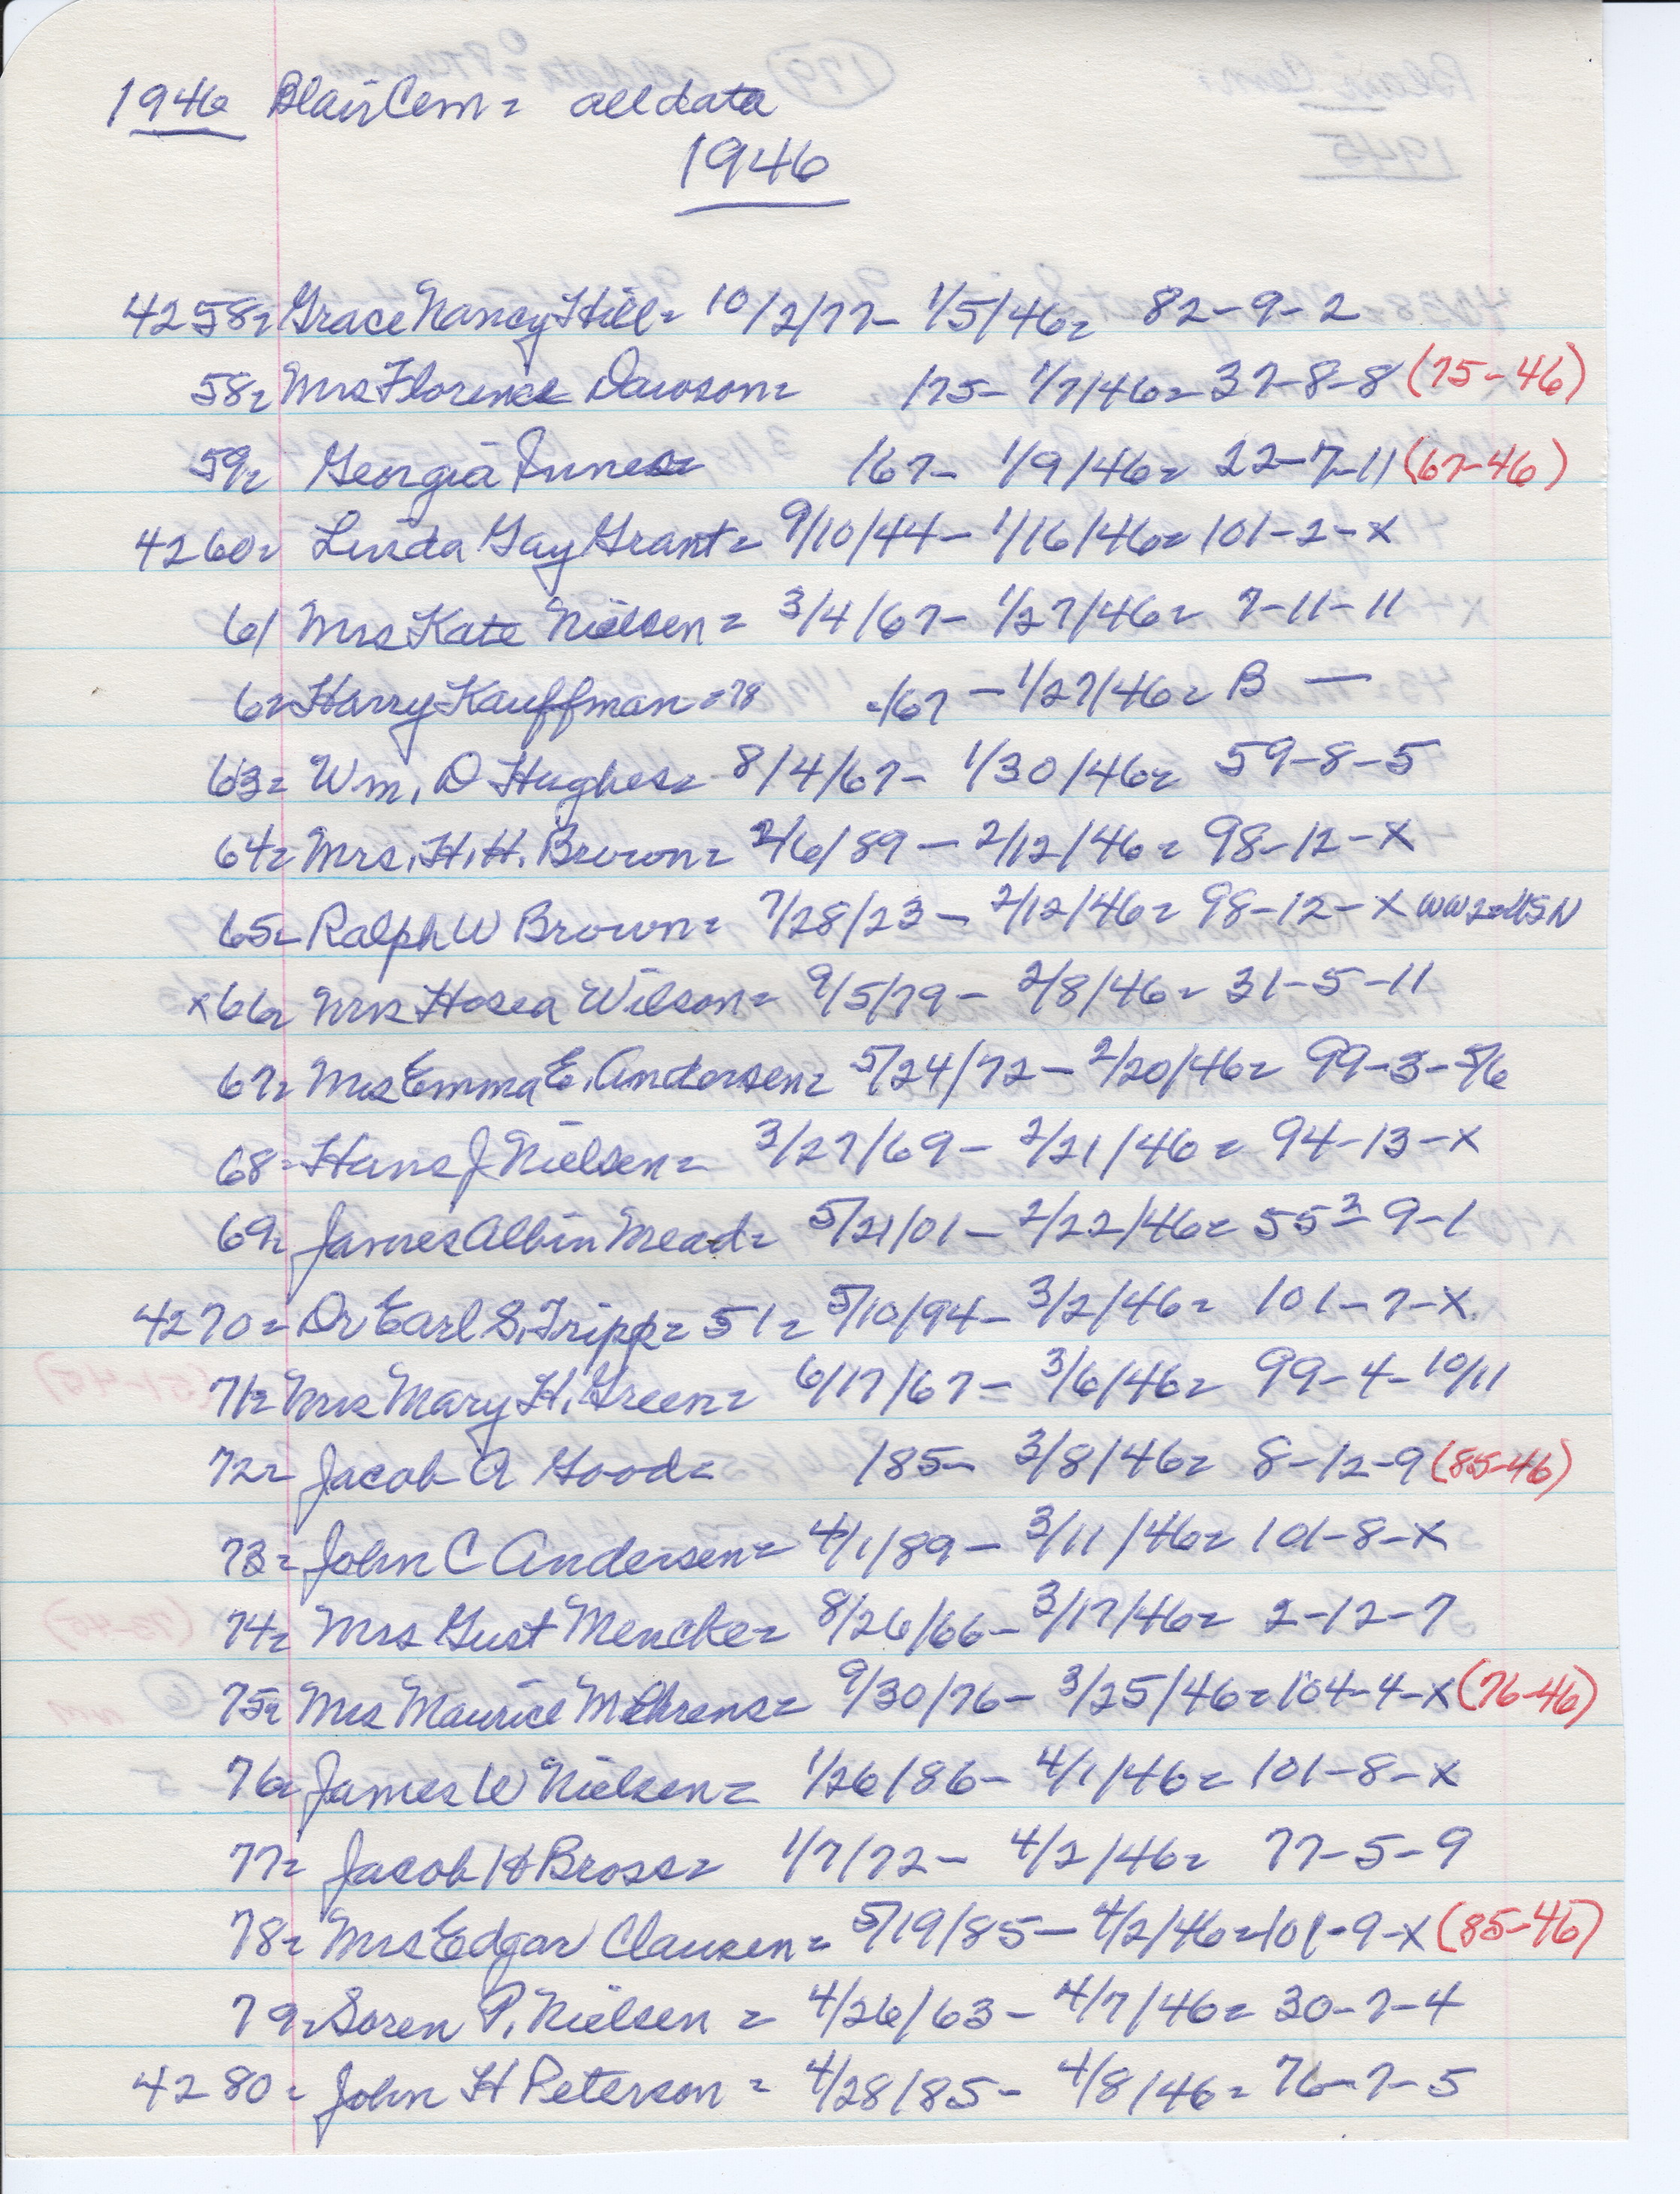 1946 Blair Cem = all data
1946
4258= Grace Nancy Hill = 10/2/77 - 1/5/46 = 82-9-2
58= Mrs Florence Dawson = 175 - 1/7/46 = 37-8-8 (75-46)
59= Georgia = 167 - 1/9/46 = 22-7-11 (67-46)
4260= Linda Gay Grant = 9/10/44 - 1/16/46 = 101-2-x
61 Mrs Kate Nielsen = 3/4/67 - 1/27/46 = 7-11-11
62 Harry Kauffman = 78 /67 - 1/27/46 = B —
63= Wm. D Hughes = 8/4/67 - 1/30/46 = 59-8-5
64= Mrs. H.H. Brown = 2/6/89 - 2/12/46 = 98-12-x
65= Ralph W Brown = 7/28/23 - 2/12/46 = 98-12-x WW2
x66= Mrs Hosea Wilson = 9/5/79 - 2/8/46 = 31-5-11
67= Mrs Emma E. Andersen = 5/24/72 - 2/20/46 = 99-3-5/6
68= Hans J. Nielsen = 3/27/69 - 2/21/46 = 94-13-x
69= James Albin Mead = 5/21/01 - 2/22/46 = 55²-9-1
4270= Dr Earl S. Tripp = 51 = 5/10/94 - 3/2/46 = 101-7-x
71= Mrs Mary H. Green = 6/17/67 - 3/6/46 = 99-4-10/11
72= Jacob A Good = 185 - 3/8/46 = 8-12-9 (85-46)
73= John C Andersen = 4/1/89 - 3/11/46 = 101-8-x
74= Mrs Gust Mencke = 8/26/66 - 3/17/46 = 2-12-7
75= Mrs Maurice Mehrens = 9/30/76 - 3/25/46 = 104-4-x (76-46)
76= James W Nielsen = 1/26/86 - 4/1/46 = 101-8-x
77= Jacob H Bross = 1/7/72 - 4/2/46 = 77-5-9
78= Mrs Edgar Clausen = 5/19/85 - 4/2/46 = 101-9-x (85-46)
79= Soren P. Nielsen = 4/26/63 - 4/7/46 = 30-7-4
4280= John H Peterson = 4/28/85 - 4/8/46 = 76-7-5